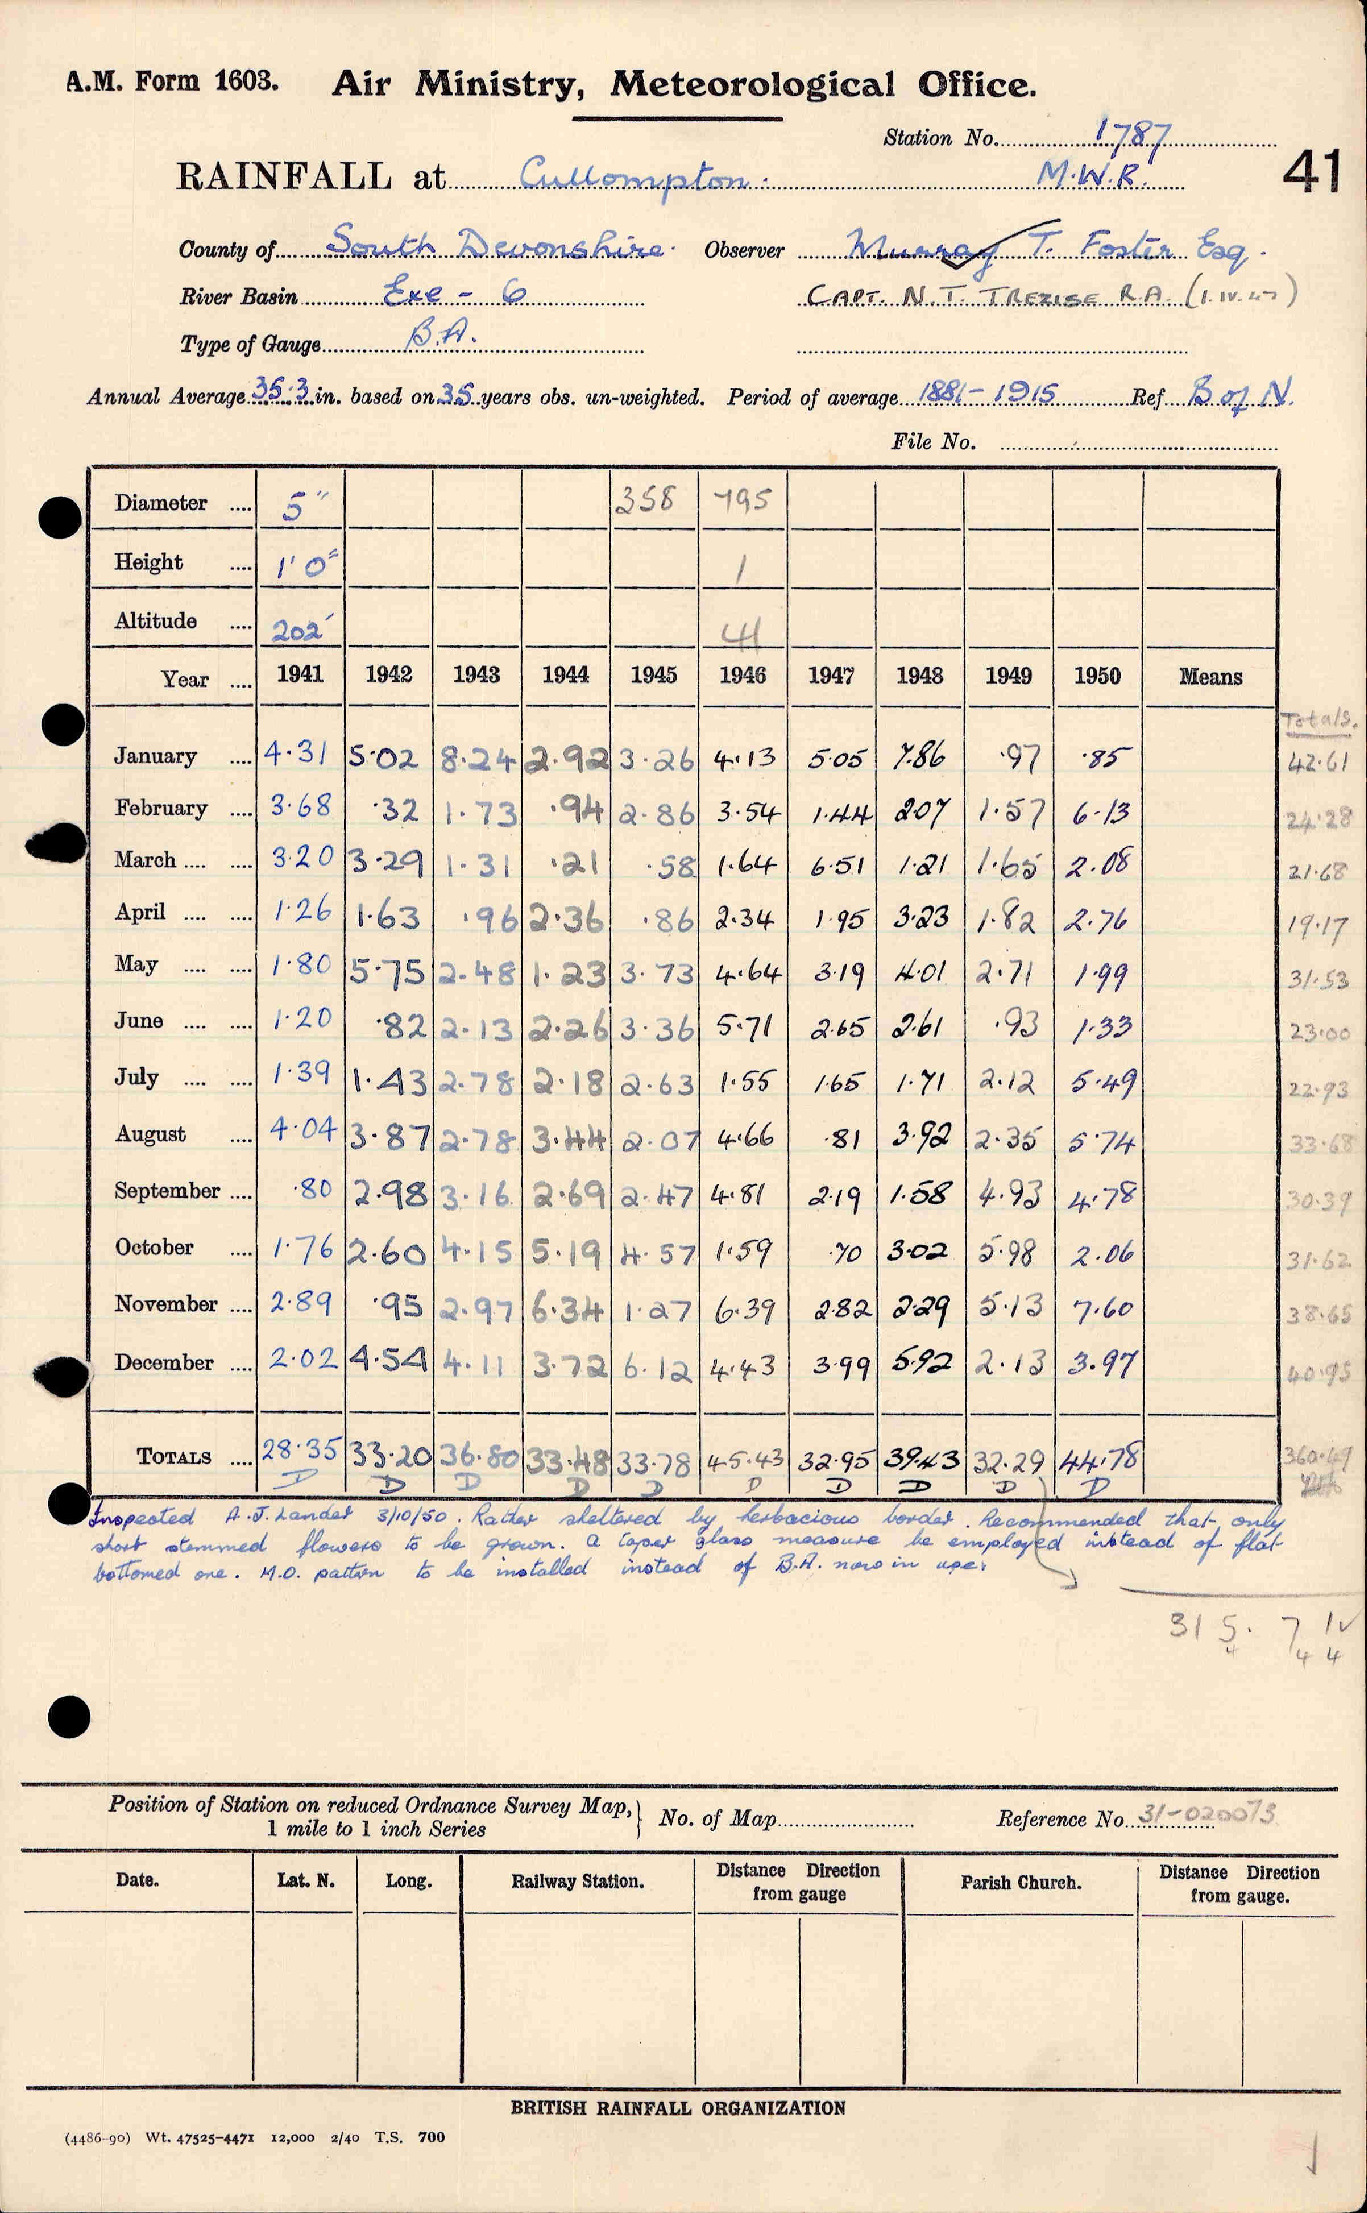 A.M. Form 1603. Air Ministry, Meteorological Office.
Station No. 1787
RAINFALL at Cullompton. M.W.R. 41
County of South Devonshire. Observer Murray T. Foster Esq.
River Basin Exe - 6 CAPT. N.T. TREZISE R.A. (1.IV.47)
Type of Gauge B.A.
Annual Average 35.3 in. based on 35 years obs. un-weighted. Period of average 1881-1915 Ref B of N.
File No.
Diameter .... 5" 358 795
Height .... 1' 0" 1
Altitude .... 202' 41
Year .... 1941 1942 1943 1944 1945 1946 1947 1948 1949 1950 Means
Totals.
January .... 4.31 5.02 8.24 2.92 3.26 4.13 5.05 7.86 .97 .85 42.61
February .... 3.68 .32 1.73 .94 2.86 3.54 1.44 2.07 1.57 6.13 24.28
March .... .... 3.20 3.29 1.31 .21 .58 1.64 6.51 1.21 1.65 2.08 21.68
April .... .... 1.26 1.63 .96 2.36 .86 2.34 1.95 3.23 1.82 2.76 19.17
May .... .... 1.80 5.75 2.48 1.23 3.73 4.64 3.19 4.01 2.71 1.99 31.53
June .... .... 1.20 .82 2.13 2.26 3.36 5.71 2.65 2.61 .93 1.33 23.00
July .... .... 1.39 1.43 2.78 2.18 2.63 1.55 1.65 1.71 2.12 5.49 22.93
August .... 4.04 3.87 2.78 3.44 2.07 4.66 .81 3.92 2.35 5.74 33.68
September .... .80 2.98 3.16 2.69 2.47 4.81 2.19 1.58 4.93 4.78 30.39
October .... 1.76 2.60 4.15 5.19 4.57 1.59 .70 3.02 5.98 2.06 31.62
November .... 2.89 .95 2.97 6.34 1.27 6.39 2.82 2.29 5.13 7.60 38.65
December .... 2.02 4.54 4.11 3.72 6.12 4.43 3.99 5.92 2.13 3.97 40.95
TOTALS .... 28.35 33.20 36.80 33.48 33.78 45.43 32.95 39.43 32.29 44.78 360.49
D D D D D D D D D D
Inspected A.J. Lander 3/10/50. Rather sheltered by herbacious border. Recommended that only
short stemmed flowers to be grown. A taper glass measure be employed instead of flat
bottomed one. M.O. pattern to be installed instead of B.A. now in use.
31 5. 7 1
4 4 4
Position of Station on reduced Ordnance Survey Map, No. of Map Reference No. 31-020073
1 mile to 1 inch Series
Date. Lat. N. Long. Railway Station. Distance Direction from gauge Parish Church. Distance Direction from gauge.
BRITISH RAINFALL ORGANIZATION
(4486-90) Wt. 47525-4471 12,000 2/40 T.S. 700